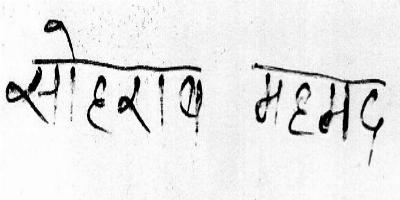 सोहराब महमद